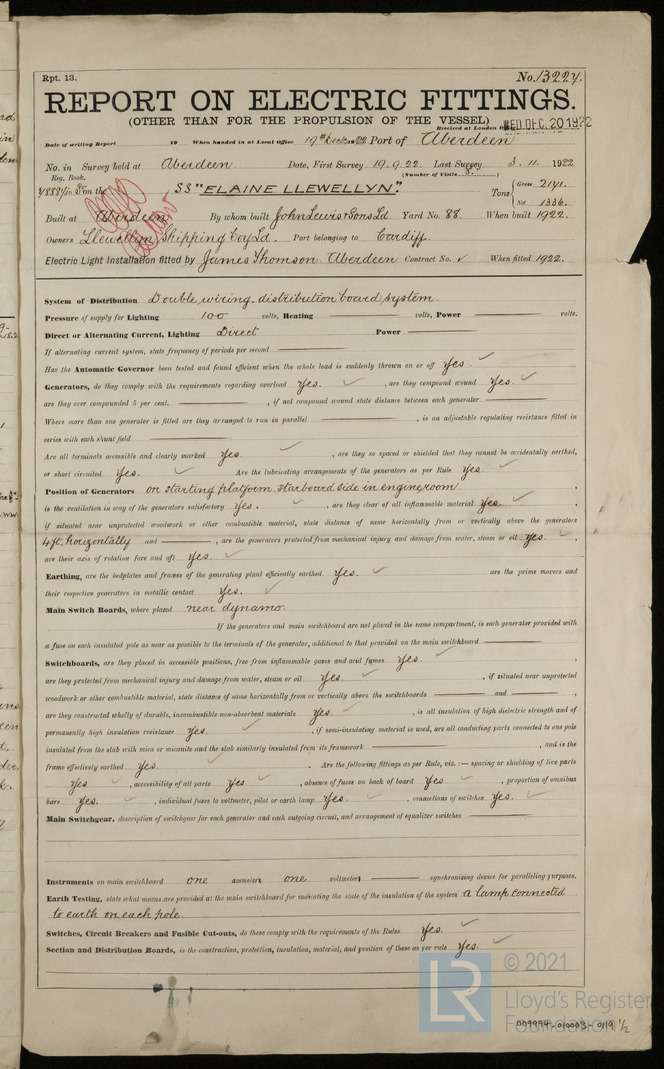 Rpt. 13.
No. 13224.
REPORT ON ELECTRIC FITTINGS.
(OTHER THAN FOR THE PROPULSION OF THE VESSEL)
Received at London
WED. DEC. 20 1922
Date of writing Report 19 When handed in at Local Office 19th Decbr 22 Port of Aberdeen
No. in Survey held at Aberdeen Date, First Survey 19.9.22 Last Survey 3.11.1922
Reg. Book. (Number of Visits 8.)
on the SS "ELAINE LLEWELLYN". Tons { Gross 2141.
Net 1336.
Built at Aberdeen By whom built John Lewis & Sons Ld Yard No. 88. When built 1922.
Owners Llewellyn Shipping Coy Ld. Port belonging to Cardiff.
Electric Light Installation fitted by James Thomson Aberdeen Contract No. ✓ When fitted 1922.
System of Distribution Double wiring, distribution board system.
Pressure of supply for Lighting 100 volts, Heating volts, Power volts.
Direct or Alternating Current, Lighting Direct Power
If alternating current system, state frequency of periods per second
Has the Automatic Governor been tested and found efficient when the whole load is suddenly thrown on or off Yes. ✓
Generators, do they comply with the requirements regarding overload Yes. ✓ , are they compound wound Yes. ✓
are they over compounded 5 per cent. , if not compound wound state distance between each generator
Where more than one generator is fitted are they arranged to run in parallel , is an adjustable regulating resistance fitted in
series with each shunt field
Are all terminals accessible and clearly marked Yes. ✓ , are they so spaced or shielded that they cannot be accidentally earthed,
or short circuited Yes. ✓ Are the lubricating arrangements of the generators as per Rule Yes ✓
Position of Generators on starting platform, starboard side in engine room.
is the ventilation in way of the generators satisfactory Yes. ✓ , are they clear of all inflammable material Yes. ✓
if situated near unprotected woodwork or other combustible material, state distance of same horizontally from or vertically above the generators
4ft, horizontally and , are the generators protected from mechanical injury and damage from water, steam or oil Yes. ✓
are their axis of rotation fore and aft Yes. ✓
Earthing, are the bedplates and frames of the generating plant efficiently earthed Yes. ✓ are the prime movers and
their respective generators in metallic contact Yes. ✓
Main Switch Boards, where placed near dynamo.
If the generators and main switchboard are not placed in the same compartment, is each generator provided with
a fuse on each insulated pole as near as possible to the terminals of the generator, additional to that provided on the main switchboard
Switchboards, are they placed in accessible positions, free from inflammable gases and acid fumes Yes. ✓
are they protected from mechanical injury and damage from water, steam or oil Yes. ✓ , if situated near unprotected
woodwork or other combustible material, state distance of same horizontally from or vertically above the switchboards and
are they constructed wholly of durable, incombustible non-absorbent materials Yes. ✓ , is all insulation of high dielectric strength and of
permanently high insulation resistance Yes. ✓ , if semi-insulating material is used, are all conducting parts connected to one pole
insulated from the slab with mica or micanite and the slab similarly insulated from its framework , and is the
frame effectively earthed Yes. ✓ Are the following fittings as per Rule, viz.:— spacing or shielding of live parts
Yes ✓ , accessibility of all parts Yes ✓ , absence of fuses on back of board Yes. ✓ , proportion of omnibus
bars Yes. ✓ , individual fuses to voltmeter, pilot or earth lamp Yes ✓ , connections of switches Yes. ✓
Main Switchgear, description of switchgear for each generator and each outgoing circuit, and arrangement of equalizer switches
Instruments on main switchboard one ammeters one voltmeters synchronising device for paralleling purposes.
Earth Testing, state what means are provided at the main switchboard for indicating the state of the insulation of the system a lamp connected
to earth on each pole.
Switches, Circuit Breakers and Fusible Cut-outs, do these comply with the requirements of the Rules Yes. ✓
Section and Distribution Boards, is the construction, protection, insulation, material, and position of these as per rule Yes ✓
LR
© 2021
Lloyd's Register
Foundation
009994-010003-0119 1/2